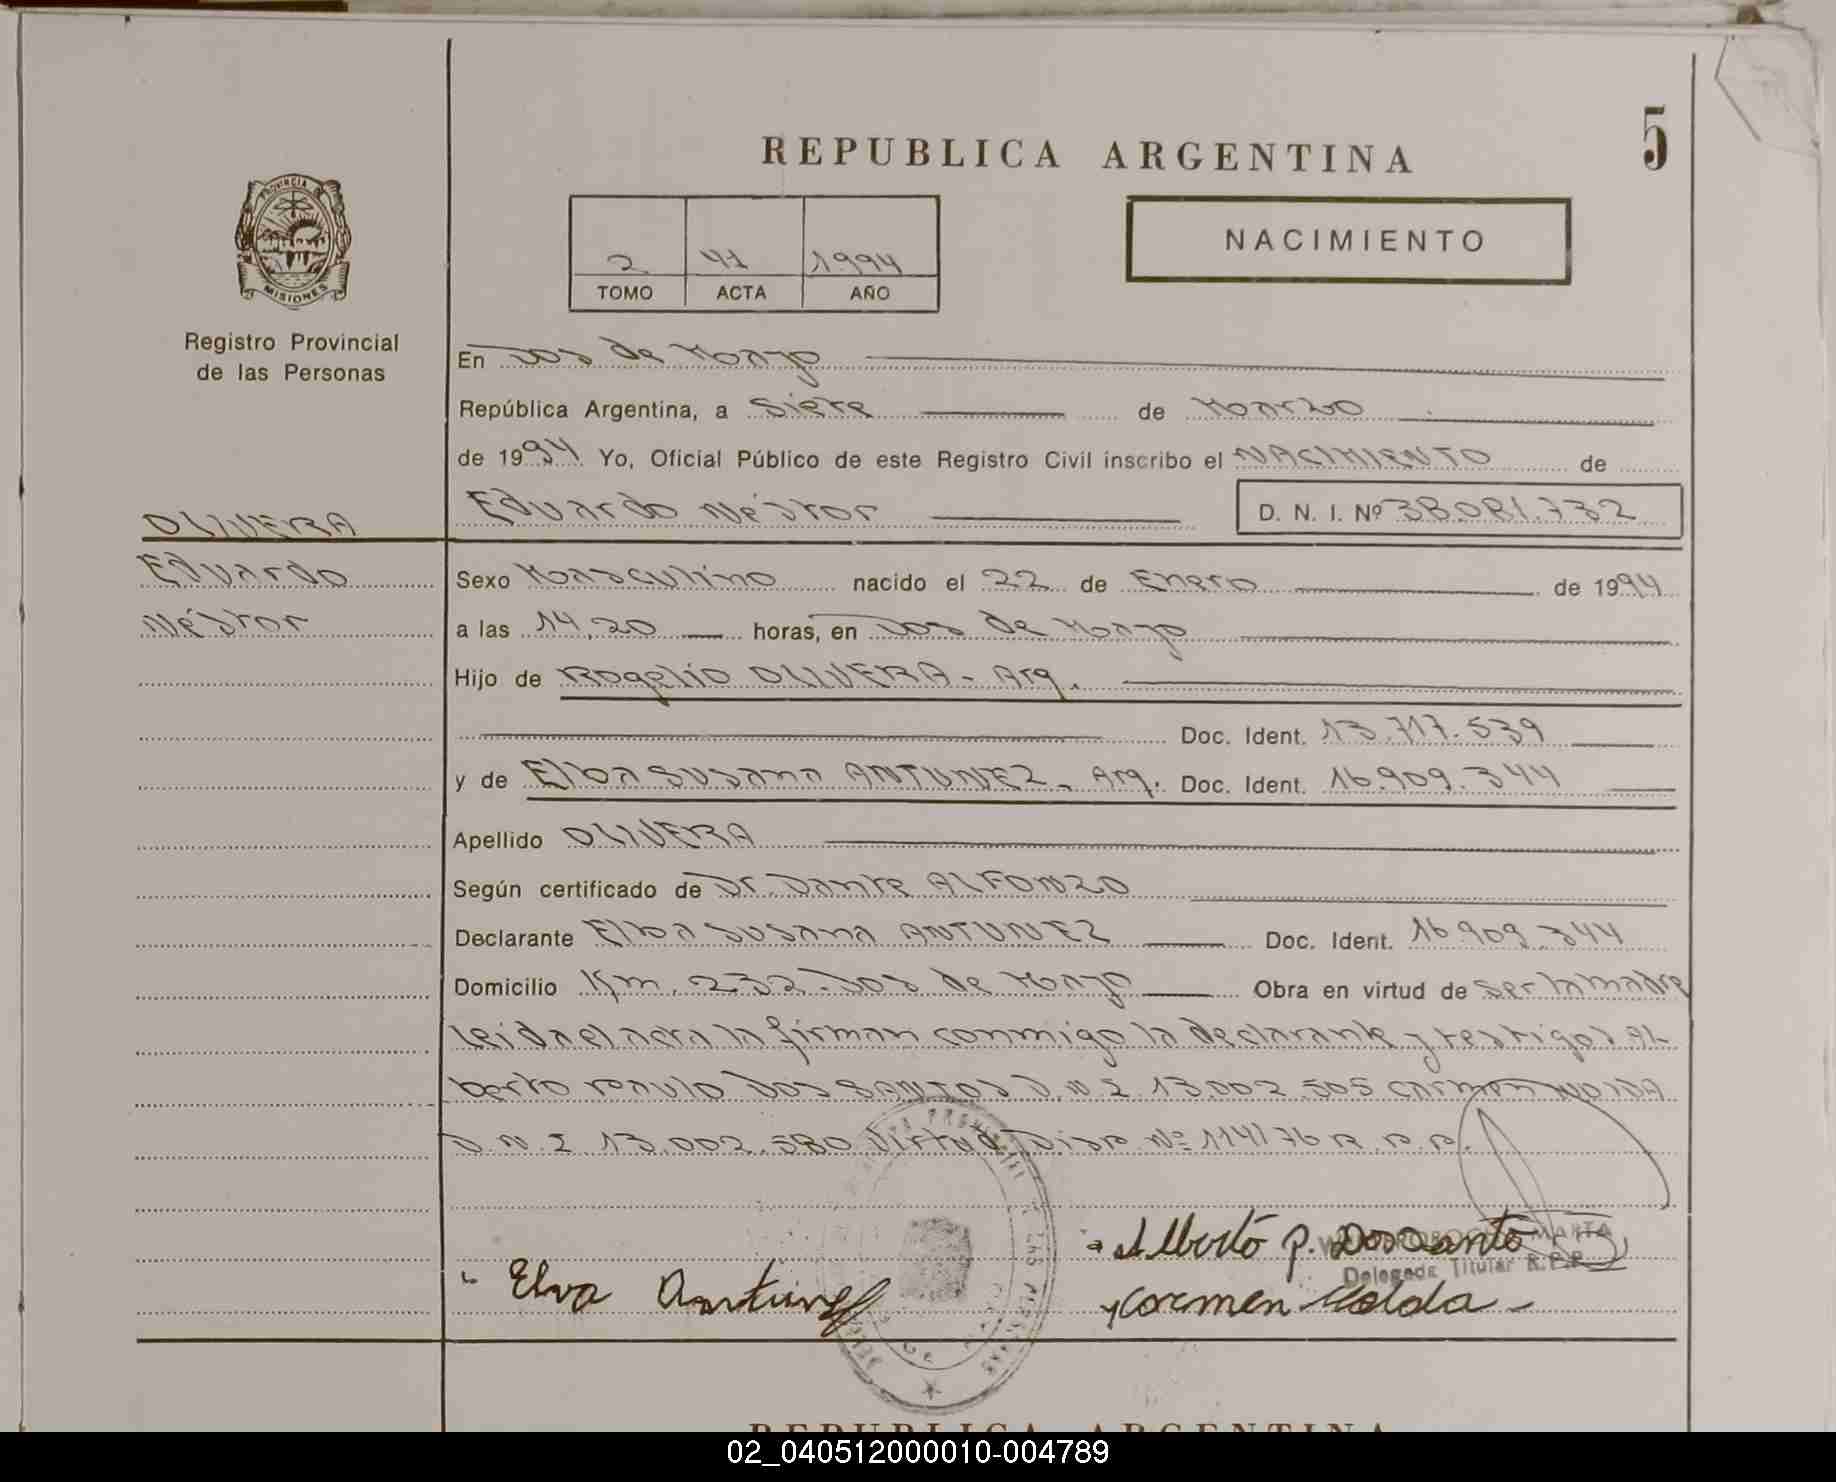 5
REPUBLICA ARGENTINA
PROVINCIA DE
MISIONES
Registro Provincial
de las Personas
2 41 1994
TOMO ACTA AÑO
NACIMIENTO
En Dos de Mayo
República Argentina, a siete de Marzo
de 1994 Yo, Oficial Público de este Registro Civil inscribo el NACIMIENTO de
Eduardo Néstor D. N. I. Nº 38.081.732
OLIVERA
Eduardo
Néstor
Sexo Masculino nacido el 22 de Enero de 1994
a las 14,20 horas, en Dos de Mayo
Hijo de Rogelio OLIVERA - Arg.
Doc. Ident. 13.717.539
y de Elba Susana ANTUNEZ - Arg. Doc. Ident. 16.909.344
Apellido OLIVERA
Según certificado de Dr. Dante ALFONZO
Declarante Elba Susana ANTUNEZ Doc. Ident. 16.909.344
Domicilio Km. 232. Dos de Mayo Obra en virtud de ser la madre
leida el acta la firman conmigo la declarante y testigos AL
berto Paulo DOS SANTOS D.N.I 13.002.505 Carmen
D.N.I 13.002.580 Virtud Disp. Nº 114/76 R.P.P.
Alberto P. Dos Santo
MARTA
Delegada Titular R.P.P.
Elva Antunez
y Carmen
REPUBLICA ARGENTINA
02_040512000010-004789